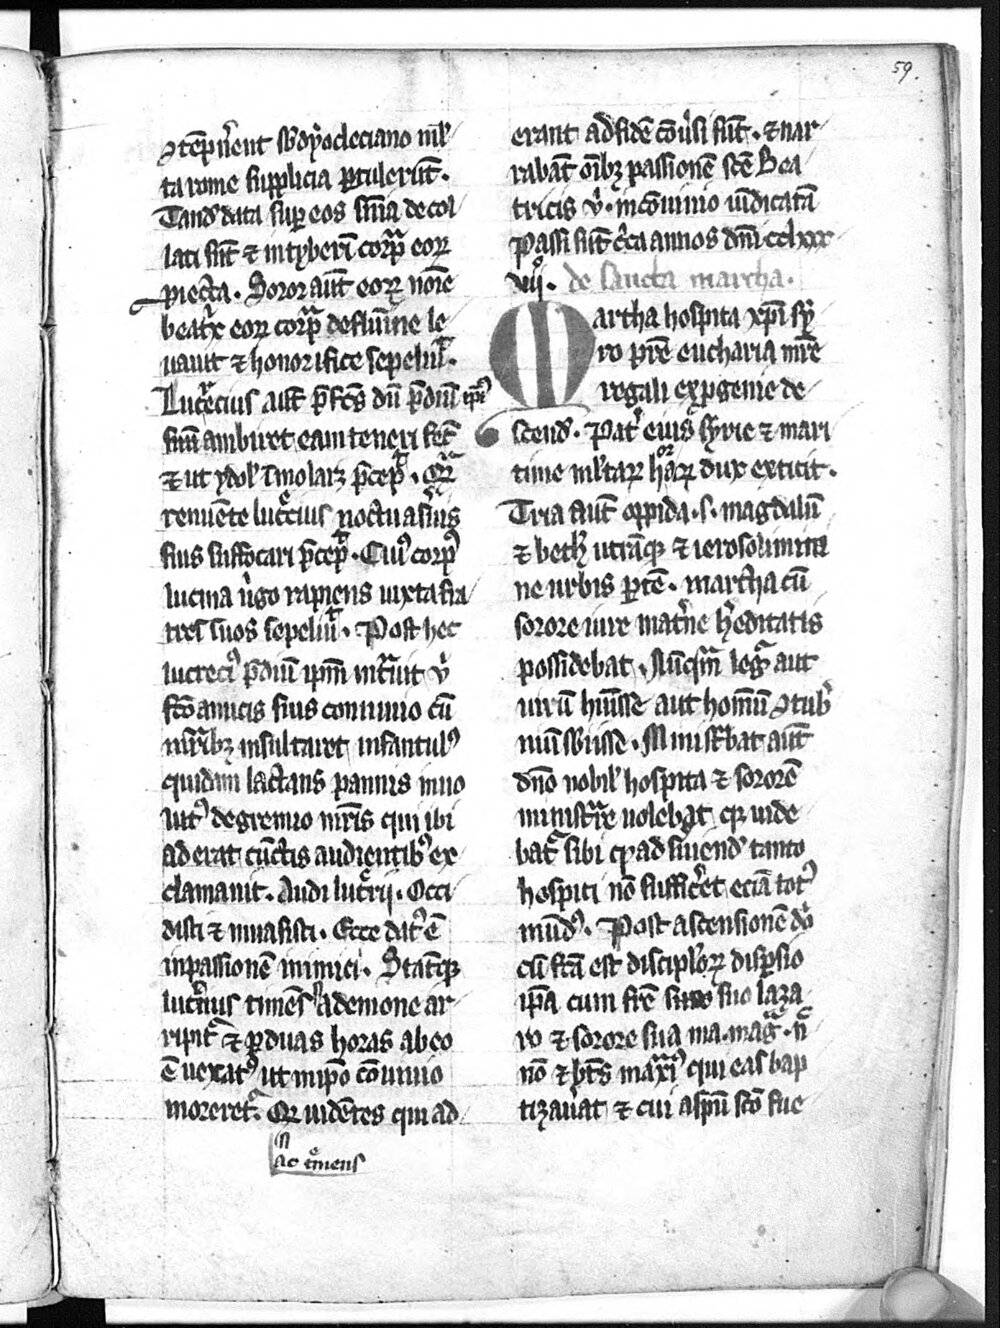 59.
ꝯtẽpn̄ent sb dyocleciano ml'
ta rome supplicia ꝑtulerūt.
Tand' data suꝑ eos sn̄ia decol
lati sūt ⁊ in tyberī corꝑa eoꝝ
ꝓiecta. Soror aūt eoꝝ noīe
beatͥx eoꝝ corꝑa de flumine le
uauit ⁊ honorifice sepeliuͭ.
Lucͤcius aūt p̄fcs̄ dū p̄diū ipīꝰ
suū ambiret eam teneri fec̄
⁊ ut ydol' īmolarꝫ p̄cepͭ. Qᷓ
renuēte lucͤcius noctu a ẜuis
suis suffocari p̄cepͭ. Cuiꝰ corpꝰ
lucina ùgo rapiens iuxta fra
tres suos sepeliuͭ. Post hec
lucreciꝰ p̄diū ipm̄ intͣuit ⁊
fc̄o amicis suis conuiuio cū
mr̄ibꝫ insultaret infantulꝰ
quidam lactans pannis inuo
lutꝰ de gremio mr̄is qui ibi
ad erat cūctis audientibꝰ ex
clamauit. Audi lucͤci. Occi
disti ⁊ inuasisti. Ecce datꝰ ē
in passionē inimici. Statīqꝫ
lucͤcius timēs a demone ar
ripit᷑ ⁊ ꝑ duas horas ab eo
ē uexatꝰ ut in ipo cōuiuio
moreret᷑. Qd uidētes qui ad
ac tͤmens
erant ad fidē cōuͥsi sūt. ⁊ nar
rabāt oībꝫ passionē sc̄e Bea
tricis ỽ. in cōuiuio uīdicatā
Passi sūt cͥca annos dn̄i cclxxx
vijͦ. de sancta martha.
Martha hospita xp̄i sy
ro pr̄e eucharia mr̄e
regali ex ꝓgenie de
scend'. Patͥ eius syrie ⁊ mari
time ml'taꝝ horaꝝ dux extitit.
Tria aūt oppida .s. magdalū
⁊ beth' utrāqꝫ ⁊ ierosolimita
ne urbis ꝑtē. martha cū
sorore iure matͥne hͤditatis
possidebat. Nūcqͣm legͭ aut
uirū hūisse aut homīū ꝯtubͥ
niū sbiisse. Ministͣbat aūt
dn̄o nobil' hospita ⁊ sororē
ministrͣre uolebat qꝛ uide
bat᷑ sibi qͩ ad ẜuiend' tanto
hospiti nō sufficͥet eciā totꝰ
mūdꝰ. Post ascensionē dn̄i
cū fc̄a est discipl'oꝝ disꝑsio
ip̄a cum fr̄e suo laza
ro ⁊ sorore sua ma. magͣ. n̄
nō ⁊ bt̄s maxͥiꝰ qui eas bap
tizaūat ⁊ cui a spū sc̄o fue